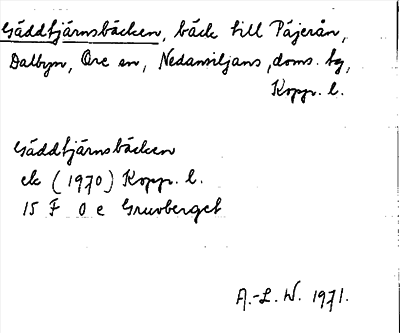 Gäddtjärnsbäcken, bäck till Päjerån,
Dalbyn, Ore sn, Nedansiljans, doms. hg,
Kopp. l.
Gäddtjärnsbäcken
ek (1970) Kopp. l.
15 F 0 e Gruvberget
A.-L. W. 1971.